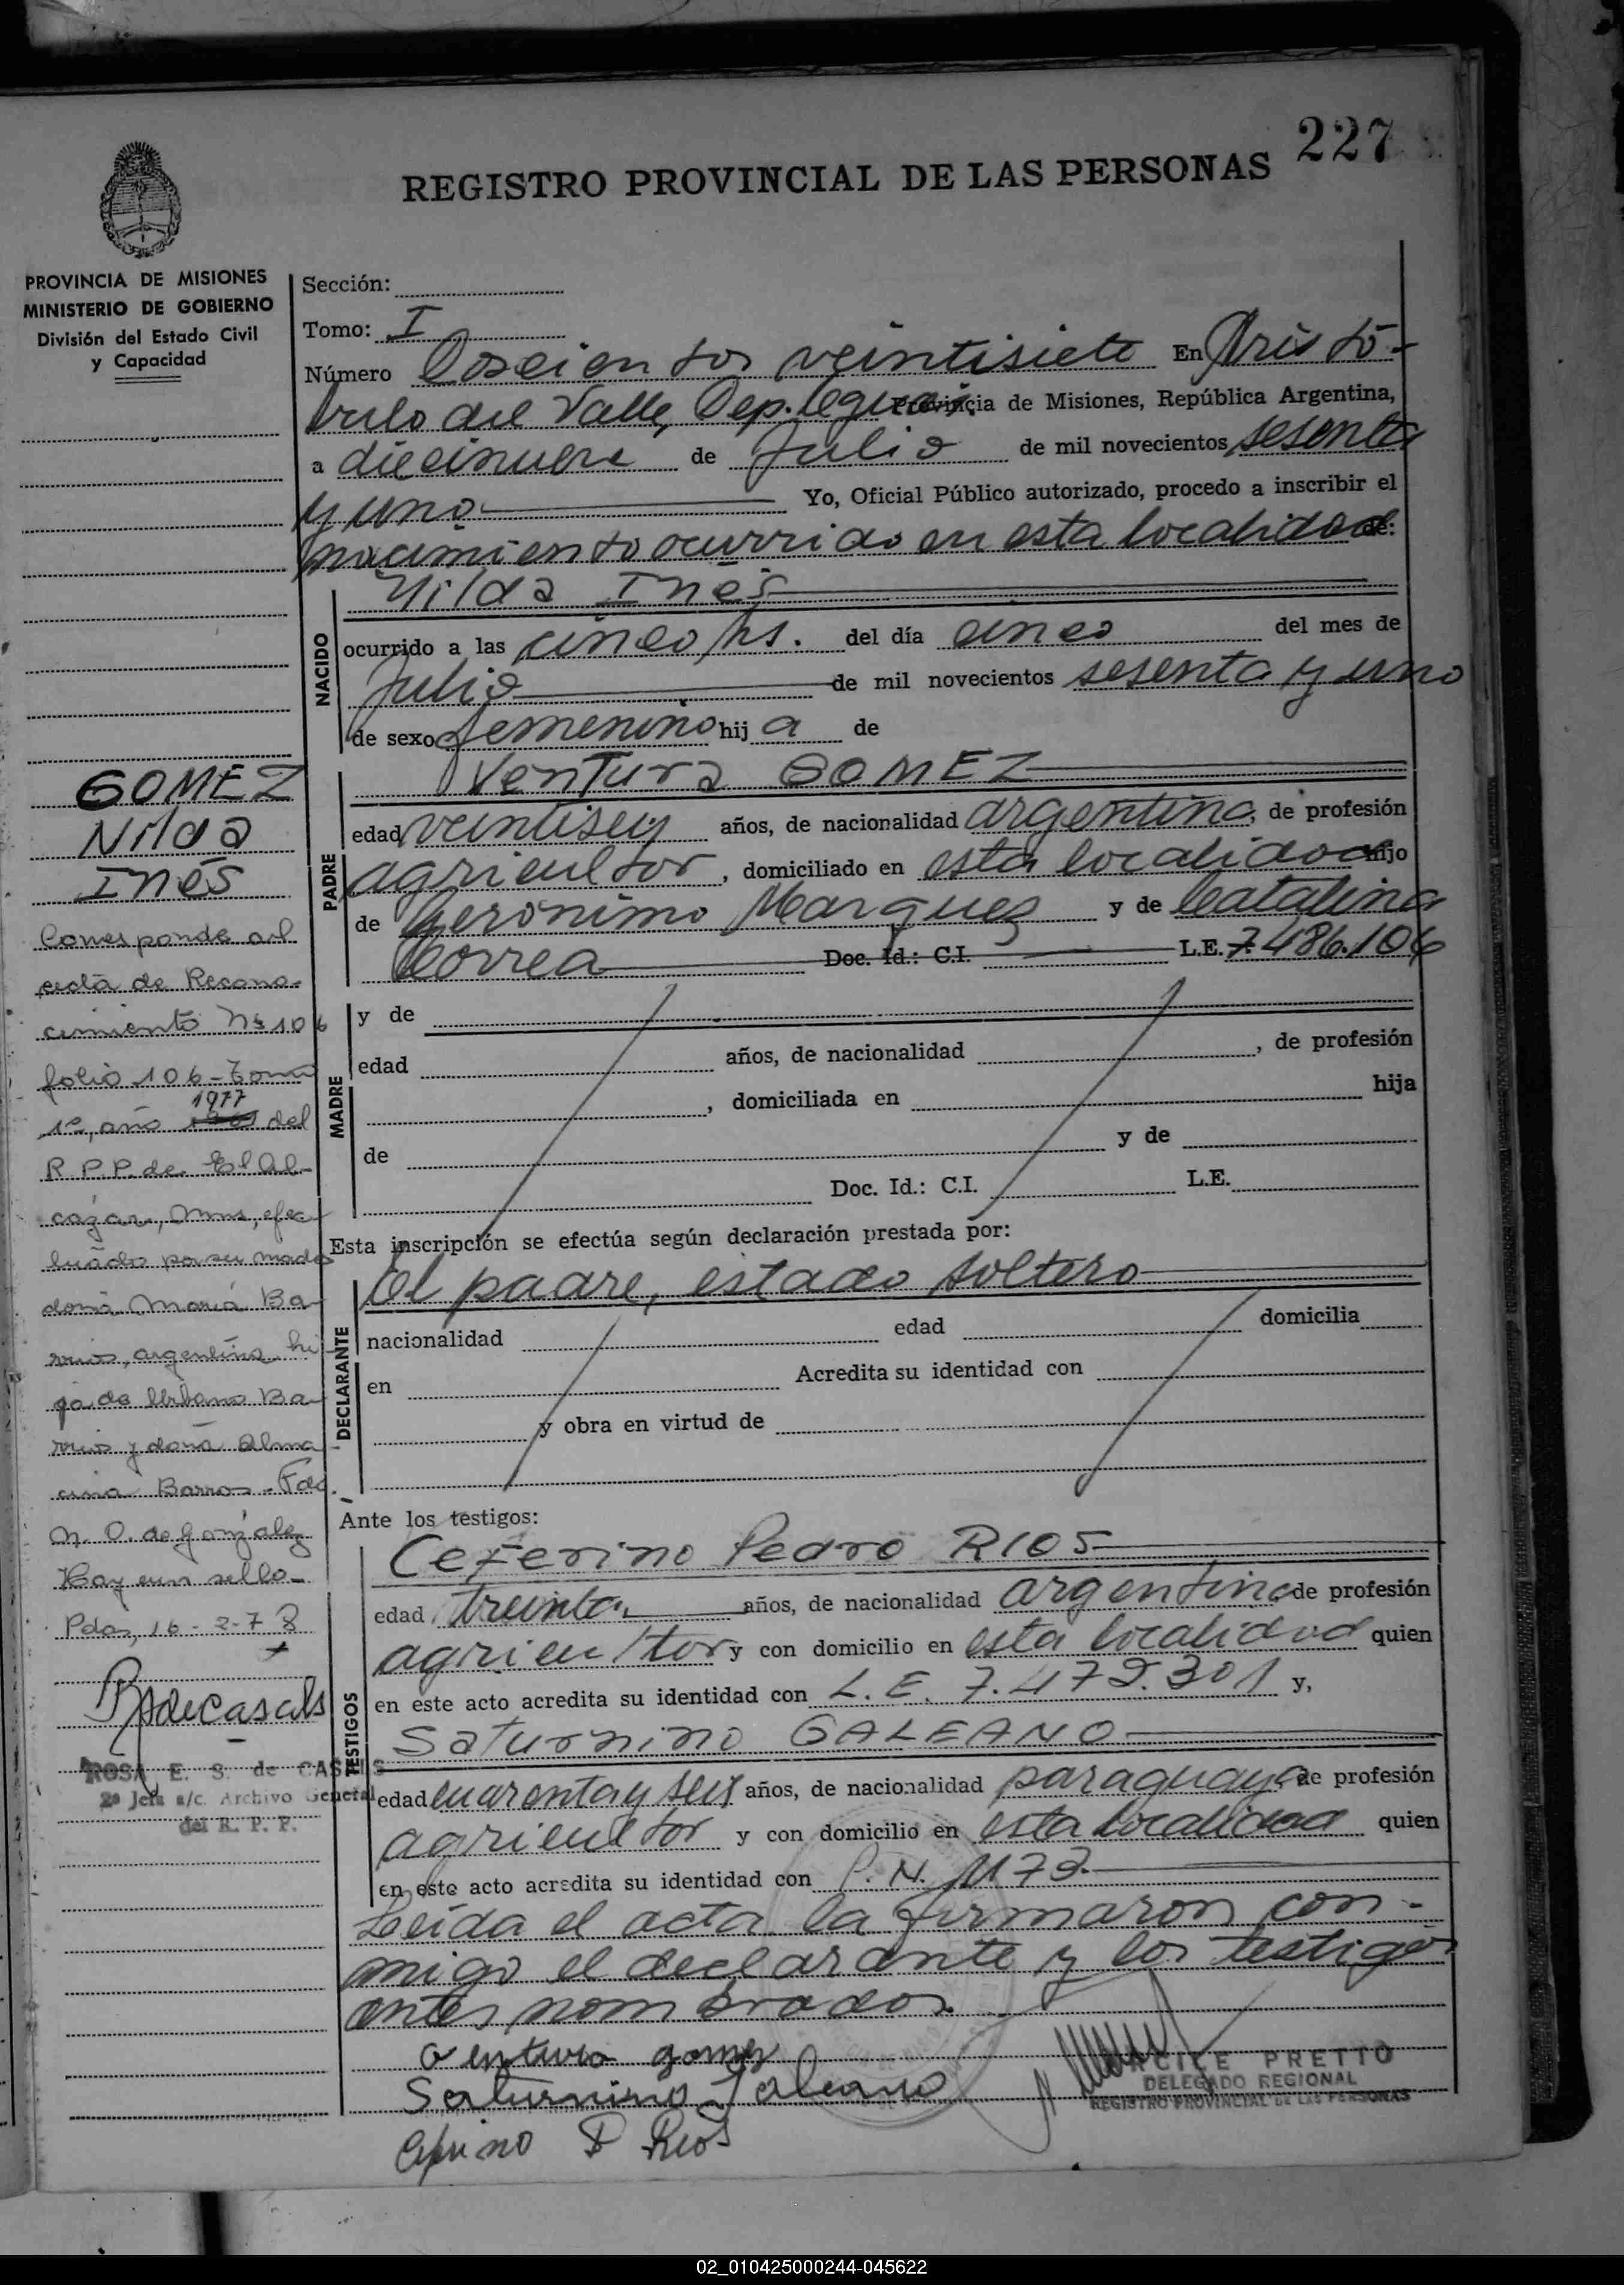 227
REGISTRO PROVINCIAL DE LAS PERSONAS
PROVINCIA DE MISIONES
MINISTERIO DE GOBIERNO
División del Estado Civil
y Capacidad
Sección:
Tomo: I
Número Doscientos veintisiete En Aristó-
bulo del Valle, Dep. Provincia de Misiones, República Argentina,
a diecinueve de Julio de mil novecientos sesenta
y uno Yo, Oficial Público autorizado, procedo a inscribir el
nacimiento ocurrido en esta localidad de:
NACIDO
Nilda Inés
ocurrido a las cinco hs. del día cinco del mes de
Julio de mil novecientos sesenta y uno
de sexo femenino hij a de
PADRE
Ventura GOMEZ
edad veintiseis años, de nacionalidad argentina, de profesión
agricultor, domiciliado en esta localidad hijo
de Gerónimo Marquez y de Catalina
Correa Doc. Id.: C.I. L.E. 7.486.106
MADRE
y de
edad años, de nacionalidad , de profesión
, domiciliada en hija
de y de
Doc. Id.: C.I. L.E.
Esta inscripción se efectúa según declaración prestada por:
DECLARANTE
El padre, estado soltero
nacionalidad edad domicilia
en Acredita su identidad con
y obra en virtud de
Ante los testigos:
TESTIGOS
Ceferino Pedro RIOS
edad treinta años, de nacionalidad argentino de profesión
agricultor y con domicilio en esta localidad quien
en este acto acredita su identidad con L.E. 7.472.301 y,
Saturnino GALEANO
edad cuarenta y seis años, de nacionalidad paraguaya de profesión
agricultor y con domicilio en esta localidad quien
en este acto acredita su identidad con P.N. 1173.
Leída el acta la firmaron con-
migo el declarante y los testigos
antes nombrados.
Ventura gomez
Saturnino Galeano
P Rios
PRETTO
DELEGADO REGIONAL
REGISTRO PROVINCIAL DE LAS PERSONAS
GOMEZ
Nilda
Inés
Corresponde al
acta de Recono-
cimiento Nº 106
folio 106-Tomo
1977
1º, año del
R.P.P. de El Al-
cázar, Mnes, efec
tuado por su madre
doña María Ba-
rrios, argentina, hi-
ja de Urbano Ba-
rrios y doña Alma
cina Barros - Fdo.
N. O. de González
Hay un sello-
Pdas, 16-2-78
R S de Casals
ROSA E. S. de CASALS
2ª Jefa a/c. Archivo General
del R. P. P.
02_010425000244-045622